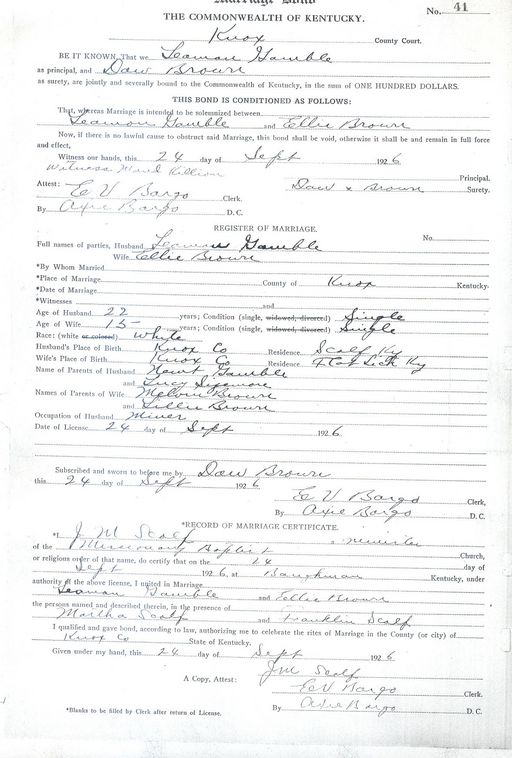 Marriage Bond
No. 41
THE COMMONWEALTH OF KENTUCKY.
Knox County Court.
BE IT KNOWN, That we Leamon Gamble
as principal, and Daw Brown
as surety, are jointly and severally bound to the Commonwealth of Kentucky, in the sum of ONE HUNDRED DOLLARS.
THIS BOND IS CONDITIONED AS FOLLOWS:
That, whereas Marriage is intended to be solemnized between
Leamon Gamble and Ellie Brown
Now, if there is no lawful cause to obstruct said Marriage, this bond shall be void, otherwise it shall be and remain in full force
and effect,
Witness our hands, this 24 day of Sept 1926
Witness Killion
Principal.
Daw x Brown Surety.
Attest: Ee V Bargo Clerk.
By Axie Bargo D. C.
REGISTER OF MARRIAGE.
No.
Full names of parties, Husband Leamon Gamble
Wife Ellie Brown
*By Whom Married
*Place of Marriage County of Knox Kentucky.
*Date of Marriage
*Witnesses and
Age of Husband 22 years; Condition (single, widowed, divorced) Single
Age of Wife 15 years; Condition (single, widowed, divorced) Single
Race: (white or colored) White
Husband's Place of Birth Knox Co Residence Scalf Ky
Wife's Place of Birth Knox Co Residence Flat Lick Ky
Name of Parents of Husband Gamble
and Lucy Sizemore
Names of Parents of Wife Melvin Brown
and Lillie Brown
Occupation of Husband Miner
Date of License 24 day of Sept 1926
Subscribed and sworn to before me by Daw Brown
this 24 day of Sept 1926
Ee V Bargo Clerk,
By Axie Bargo D. C.
*RECORD OF MARRIAGE CERTIFICATE.
*I J M Scalf a minister
of the Missionary Baptist Church,
or religious order of that name, do certify that on the 24 day of
Sept 1926, at Baughman Kentucky, under
authority of the above license, I united in Marriage
Leamon Gamble and Ellie Brown
the persons named and described therein, in the presence of
Martha Scalf and Franklin Scalf
I qualified and gave bond, according to law, authorizing me to celebrate the rites of Marriage in the County (or city) of
Knox Co State of Kentucky.
Given under my hand, this 24 day of Sept 1926
J M Scalf
A Copy, Attest: Ee V Bargo Clerk.
By Axie Bargo D. C.
*Blanks to be filled by Clerk after return of License.